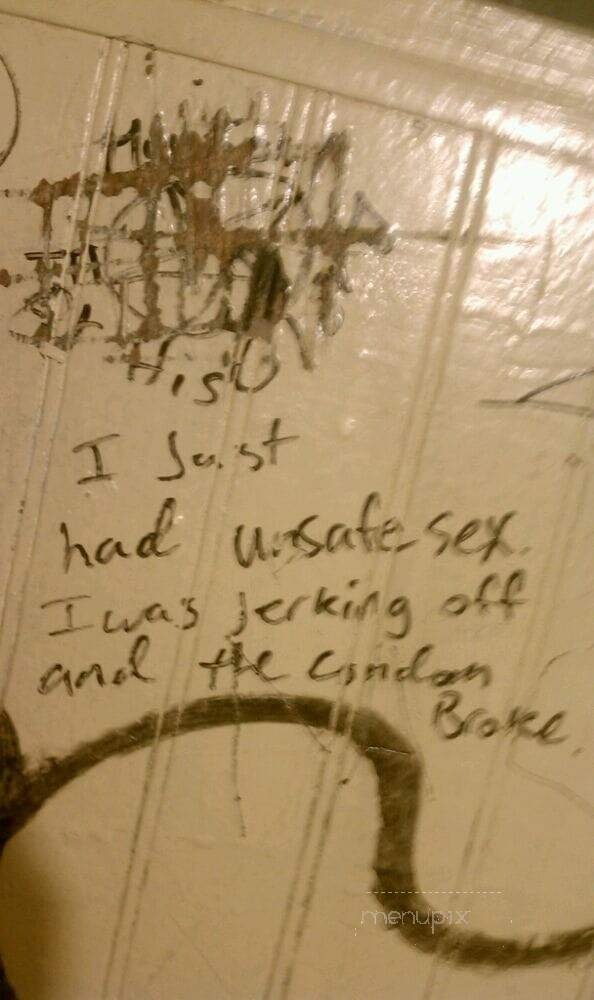 I Just
had unsafe sex.
I was jerking off
and the condom
Broke.
menupix